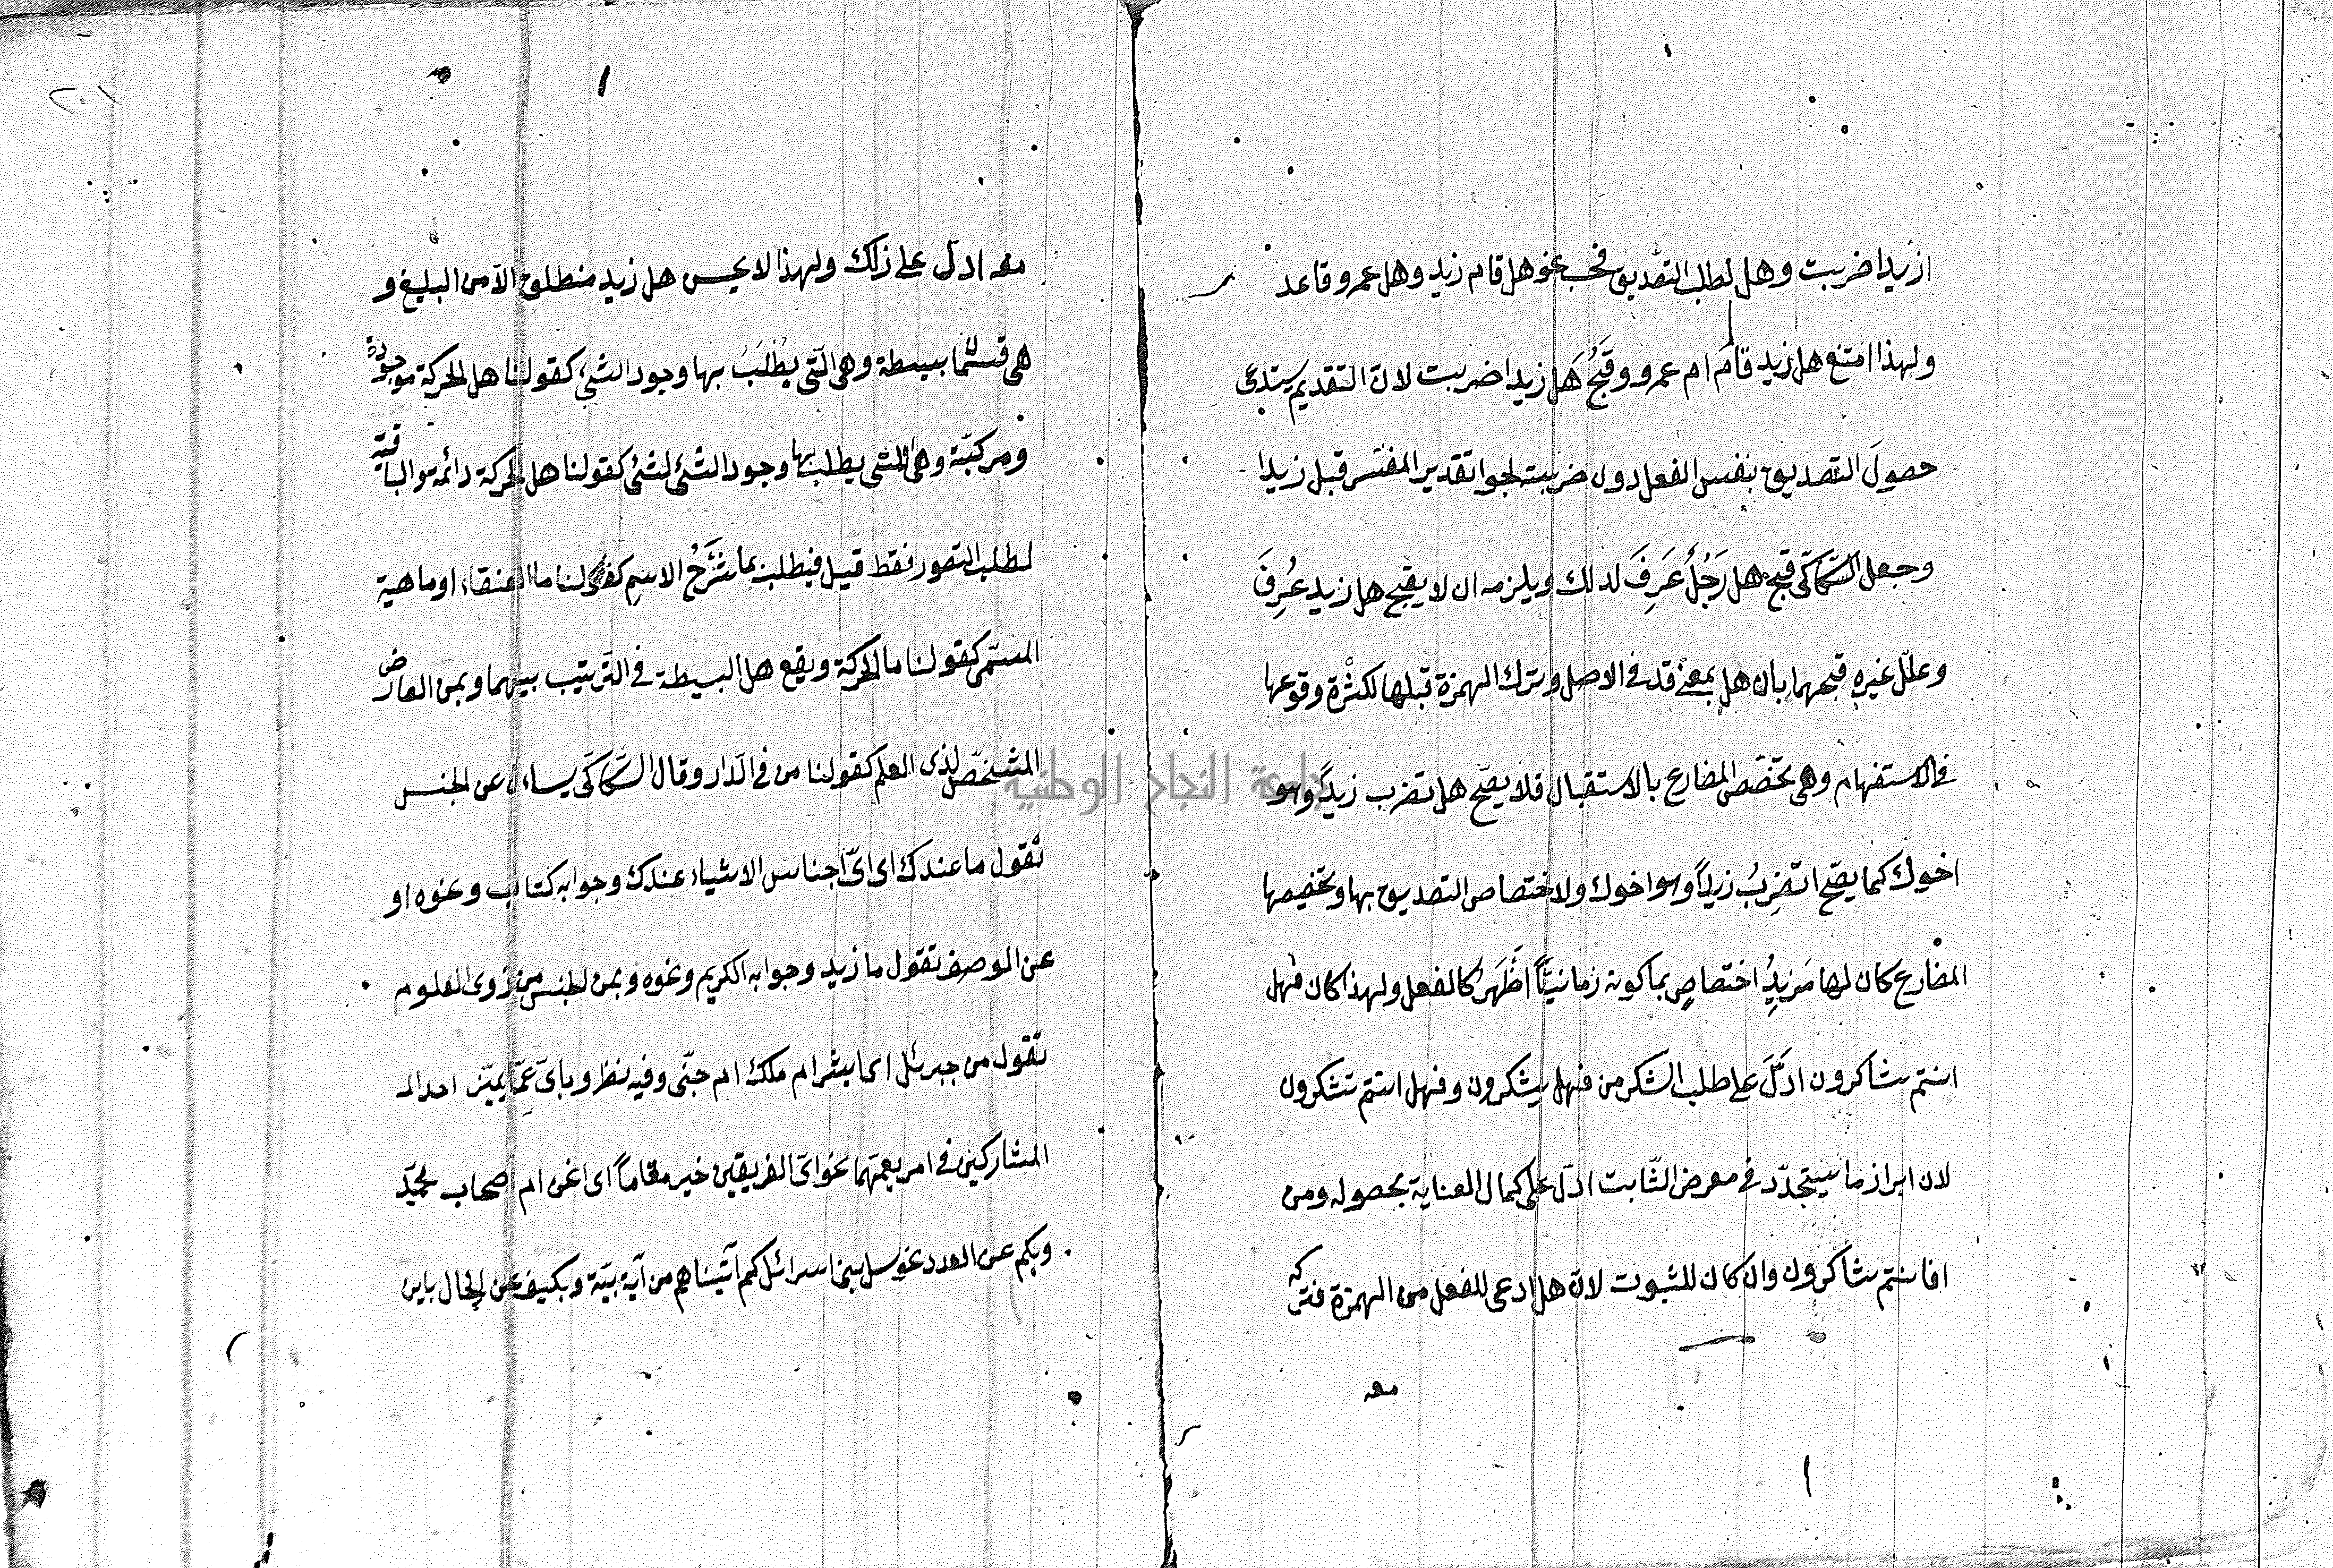 ازيدا ضربت وهل لطلب التصديق فحسب نحو هل قام زيد وهل عمرو قاعد
ولهذا امتنع هل زيد قام ام عمرو وقَبُحَ هَل زيدا ضربت لان التقديم يستدعى
حصولَ التصديق بنفس الفعل دون ضربته لجواز تقدير المفسر قبل زيدا
وجعل السّكّاكّى قبح هل رَجُلٌ عَرِفَ لذلك ويلزمه ان لا يقبح هل زيد عُرِفَ
وعلّل غيره قبحهما بان هل بمعنى قد فى الاصل وترك الهمزة قبلها لكثرة وقوعها
فى الاستفهام وهى تخصّص المضارع بالاستقبال فلا يصّح هل تضرب زيداً وهو
اخوك كما يصّح اتضرِبُ زيداً وهو اخوك ولاختصاص التصديق بها وتخصيصها
المضارع كان لها مَزِيدُ اختصاصٍ بما كونه زمانيّاً اَظْهَرُ كالفعل ولهذا كان فهل
انتم شاكرون ادَلّ على طلب الشّكر من فهل يشكرون وفهل انتم تشكرون
لان ابراز ما سيتجدّد فى معرض الثّابت ادلّ على كمال العناية بحصوله ومن
افانتم شاكرون وان كان للثبوت لانّ هل ادعى للفعل من الهمزة فتركه
معه
٢٠١
معه ادل على ذلك ولهذا لا يحسن هل زيد منطلق الا من البليغ و
هى قسمان بسيطة وهى الّتى يُطْلَبُ بها وجود الشئ كقولنا هل الحركة موجودة
ومركبّة وهى التى يطلب بها وجود الشئ لشئ كقولنا هل الحركة دائمة والباقية
لطلب التصور فقط قيل فيطلب بما شَرْحُ الاسمِ كقولنا ما العنقاء او ماهية
المسّمى كقولنا ما الحركة ويقع هل البسيطة فى التّرتيب بينهما وبمن العارض
المشخصّ لذى العلم كقولنا من فى الدّار وقال السّكّاكّى يساءل عن الجنس
تقول ما عندك اى اىّ اجناس الاشياء عندك وجوابه كتاب ونحوه او
عن الوصف تقول ما زيد وجوابه الكريم ونحوه وبمن الجنس من ذوى العلوم
تقول من جبرئل اى ابشر ام ملك ام جنّى وفيه نظر وباىّ عمّا يميّز احد الـ
المشاركين فى امر يعمّهما نحو اىّ الفريقين خير مقاماً اى انحن ام اصحاب محمّد
وبكم عن العدد نحو سل بنى اسرائل كم آتيناهم من آية بيّنة وبكيف عن الحال باين
جامعة النجاح الوطنية